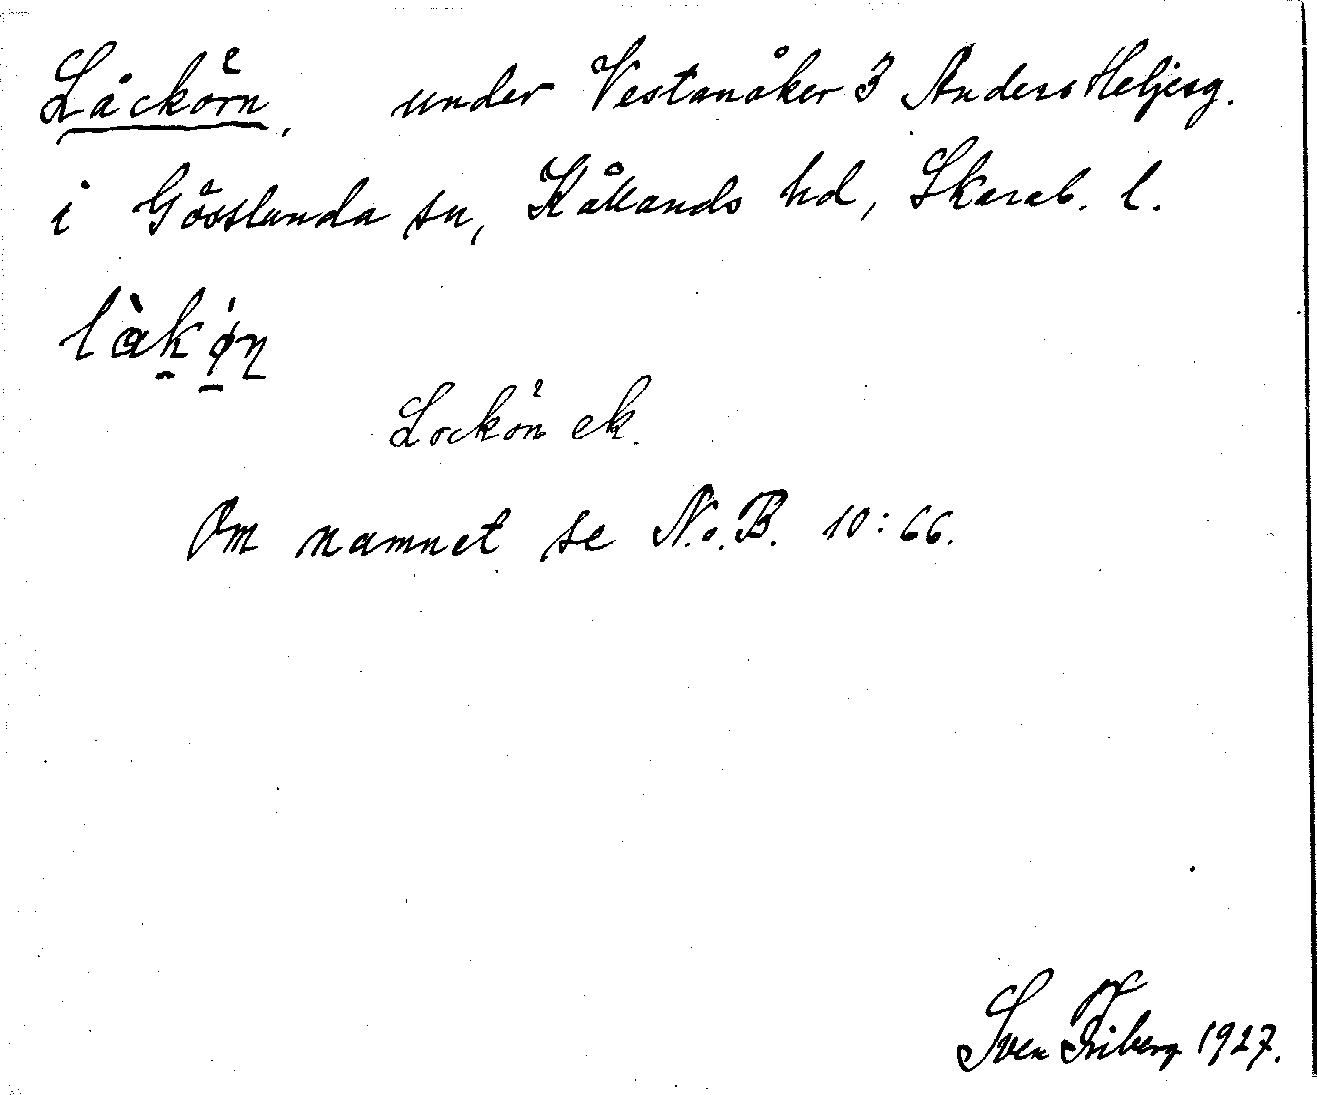 Låckörn, under Vestanåker 3 Anders Heljesg.
i Gösslunda sn, Kållands hd, Skarab. l.
làkø̀n
Lockön ek.
Om namnet se N.o.B. 10:66.
Sven Friberg 1927.